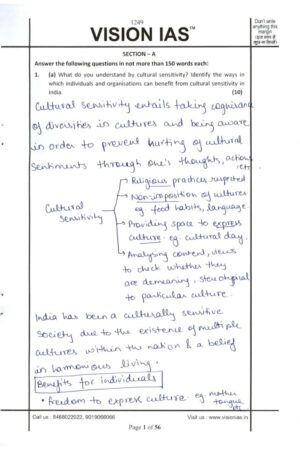 1249
VISION IAS™
Don't write
anything this
margin
SECTION – A
Answer the following questions in not more than 150 words each:
1. (a) What do you understand by cultural sensitivity? Identify the ways in
which individuals and organisations can benefit from cultural sensitivity in
India. (10)
Cultural Sensitivity entails taking cognisance
of diversities in cultures and being aware
in order to prevent hurting of cultural
sentiments through one's thoughts, actions
etc
Religious practices respected
Non-imposition of cultures
eg food habits, language.
Cultural
Sensitivity
Providing space to express
culture. eg. cultural day.
Analysing content, views
to check whether they
are demeaning, stereotypical
to particular culture.
India has been a culturally sensitive
society due to the existence of multiple
cultures within the nation & a belief
in harmonious living.
Benefits for individuals
• Freedom to express culture eg. mother
tongue
etc
Call us : 8468022022, 9019066066
Visit us : www.visionias.in
Page 1 of 56